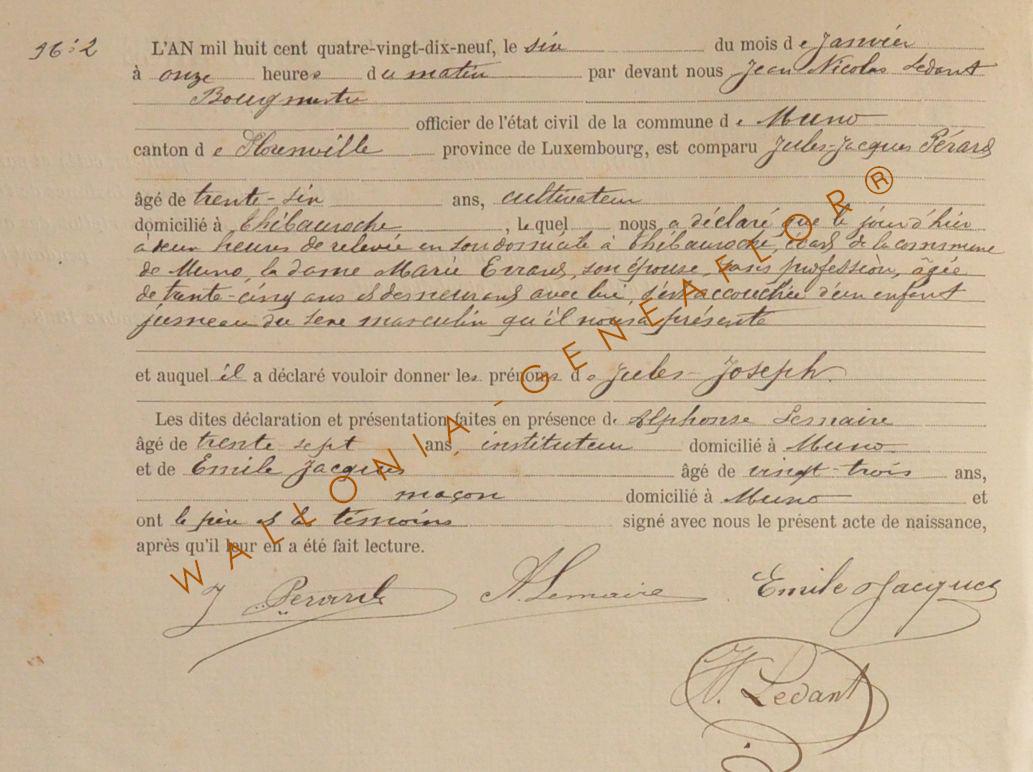 N°: 2
L'AN mil huit cent quatre-vingt-dix-neuf, le six du mois de Janvier
à onze heures du matin par devant nous Jean Nicolas Ledant
Bourgmestre
officier de l'état civil de la commune de Muno
canton de Florenville province de Luxembourg, est comparu Jules-Jacques Pérard
âgé de trente-six ans, cultivateur
domicilié à Thibauroche, lequel nous a déclaré que le jour d'hier
à deux heures de relevée en son domicile à Thibauroche, écart de la commune
de Muno, la dame Marie Errard, son épouse, sans profession, âgée
de trente-cinq ans et demeurant avec lui, s'est accouchée d'un enfant
jumeau du sexe masculin qu'il nous a présenté
et auquel il a déclaré vouloir donner les prénoms de Jules-Joseph.
Les dites déclaration et présentation faites en présence de Alphonse Lemaire
âgé de trente sept ans instituteur domicilié à Muno
et de Emile Jacques âgé de vingt-trois ans,
maçon domicilié à Muno et
ont le père et les témoins signé avec nous le présent acte de naissance,
après qu'il leur en a été fait lecture.
J Perard A Lemaire Emile Jacques
N. Ledant
WALLONIA-GENEAFLOR®